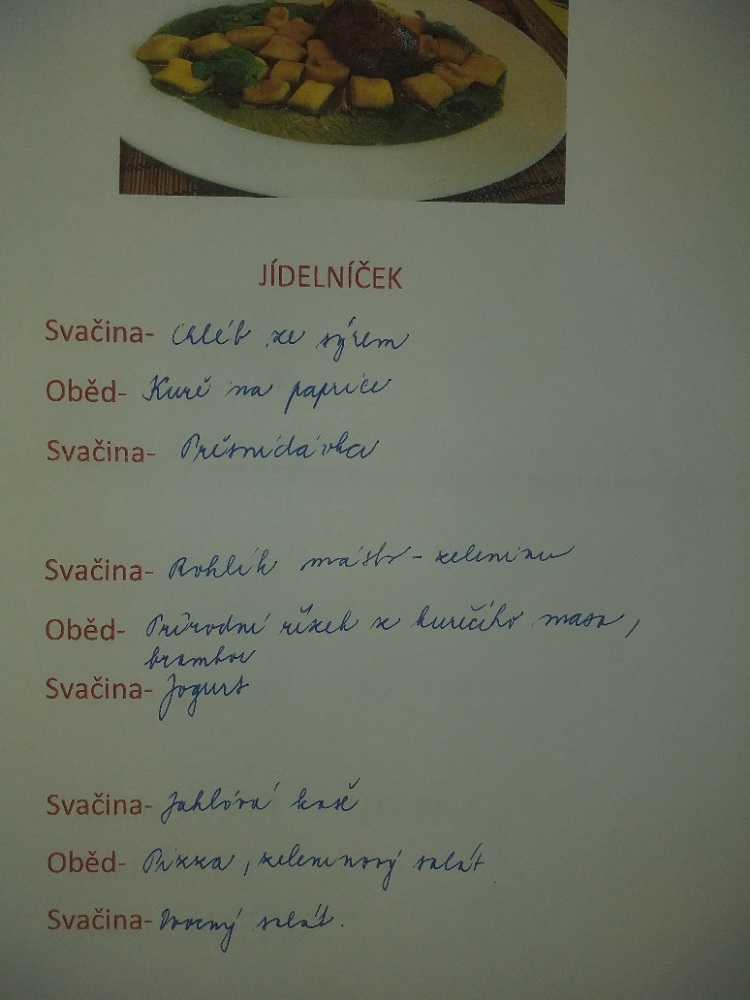 JÍDELNÍČEK
Svačina- Chléb se sýrem
Oběd- Kuře na paprice
Svačina- Přesnídávka
Svačina- Rohlík máslo - zelenina
Oběd- Přírodní řízek z kuřecího masa,
brambor
Svačina- Jogurt
Svačina- Jahlová kaše
Oběd- Pizza, zeleninový salát
Svačina- Ovocný salát.